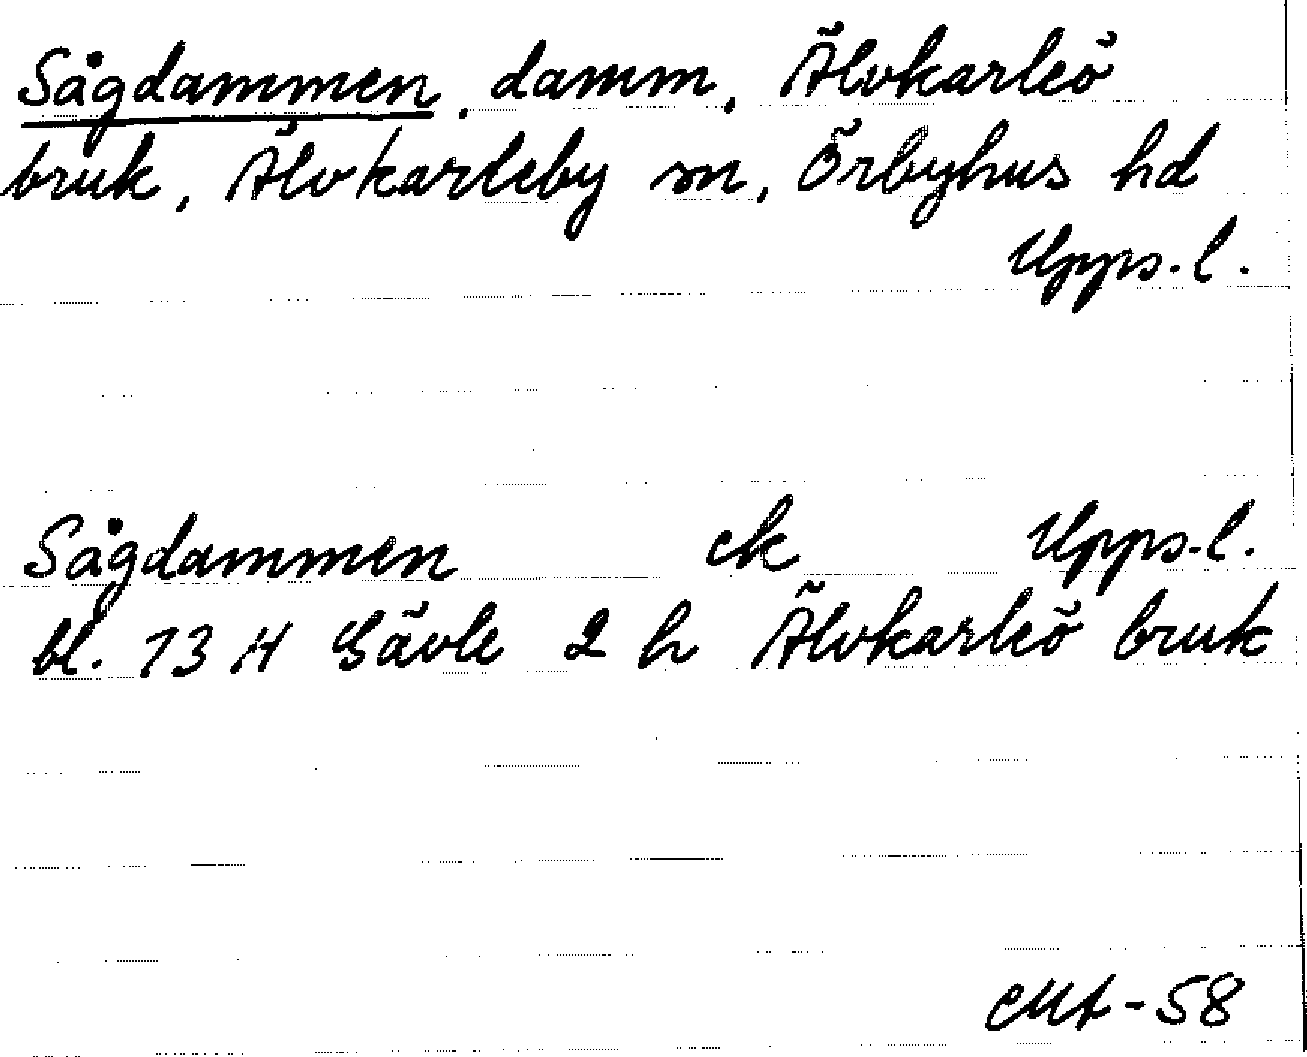 Sågdammen, damm, Älvkarleö
bruk, Älvkarleby sn, Örbyhus hd
Upps.l.
Sågdammen ek Upps.l.
bl. 13 H Gävle 2 h Älvkarleö bruk
-58